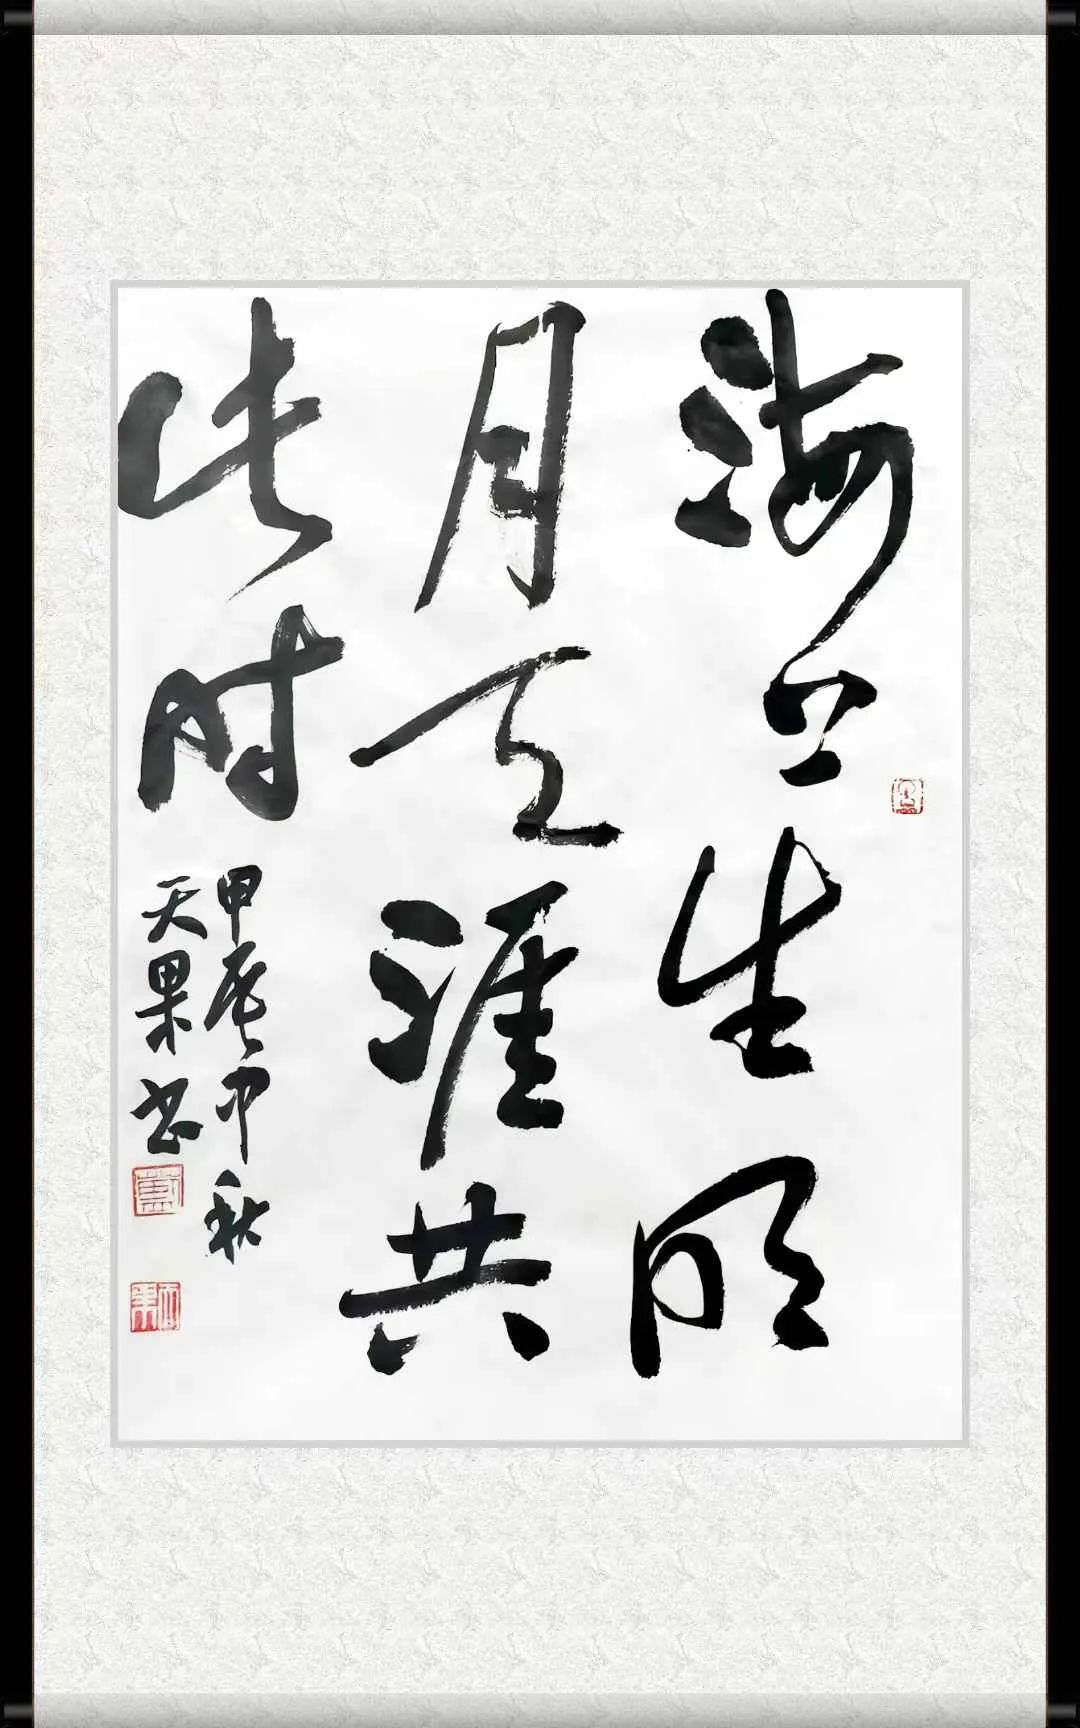 海上生明
月天涯共
此时
甲辰中秋
天果书